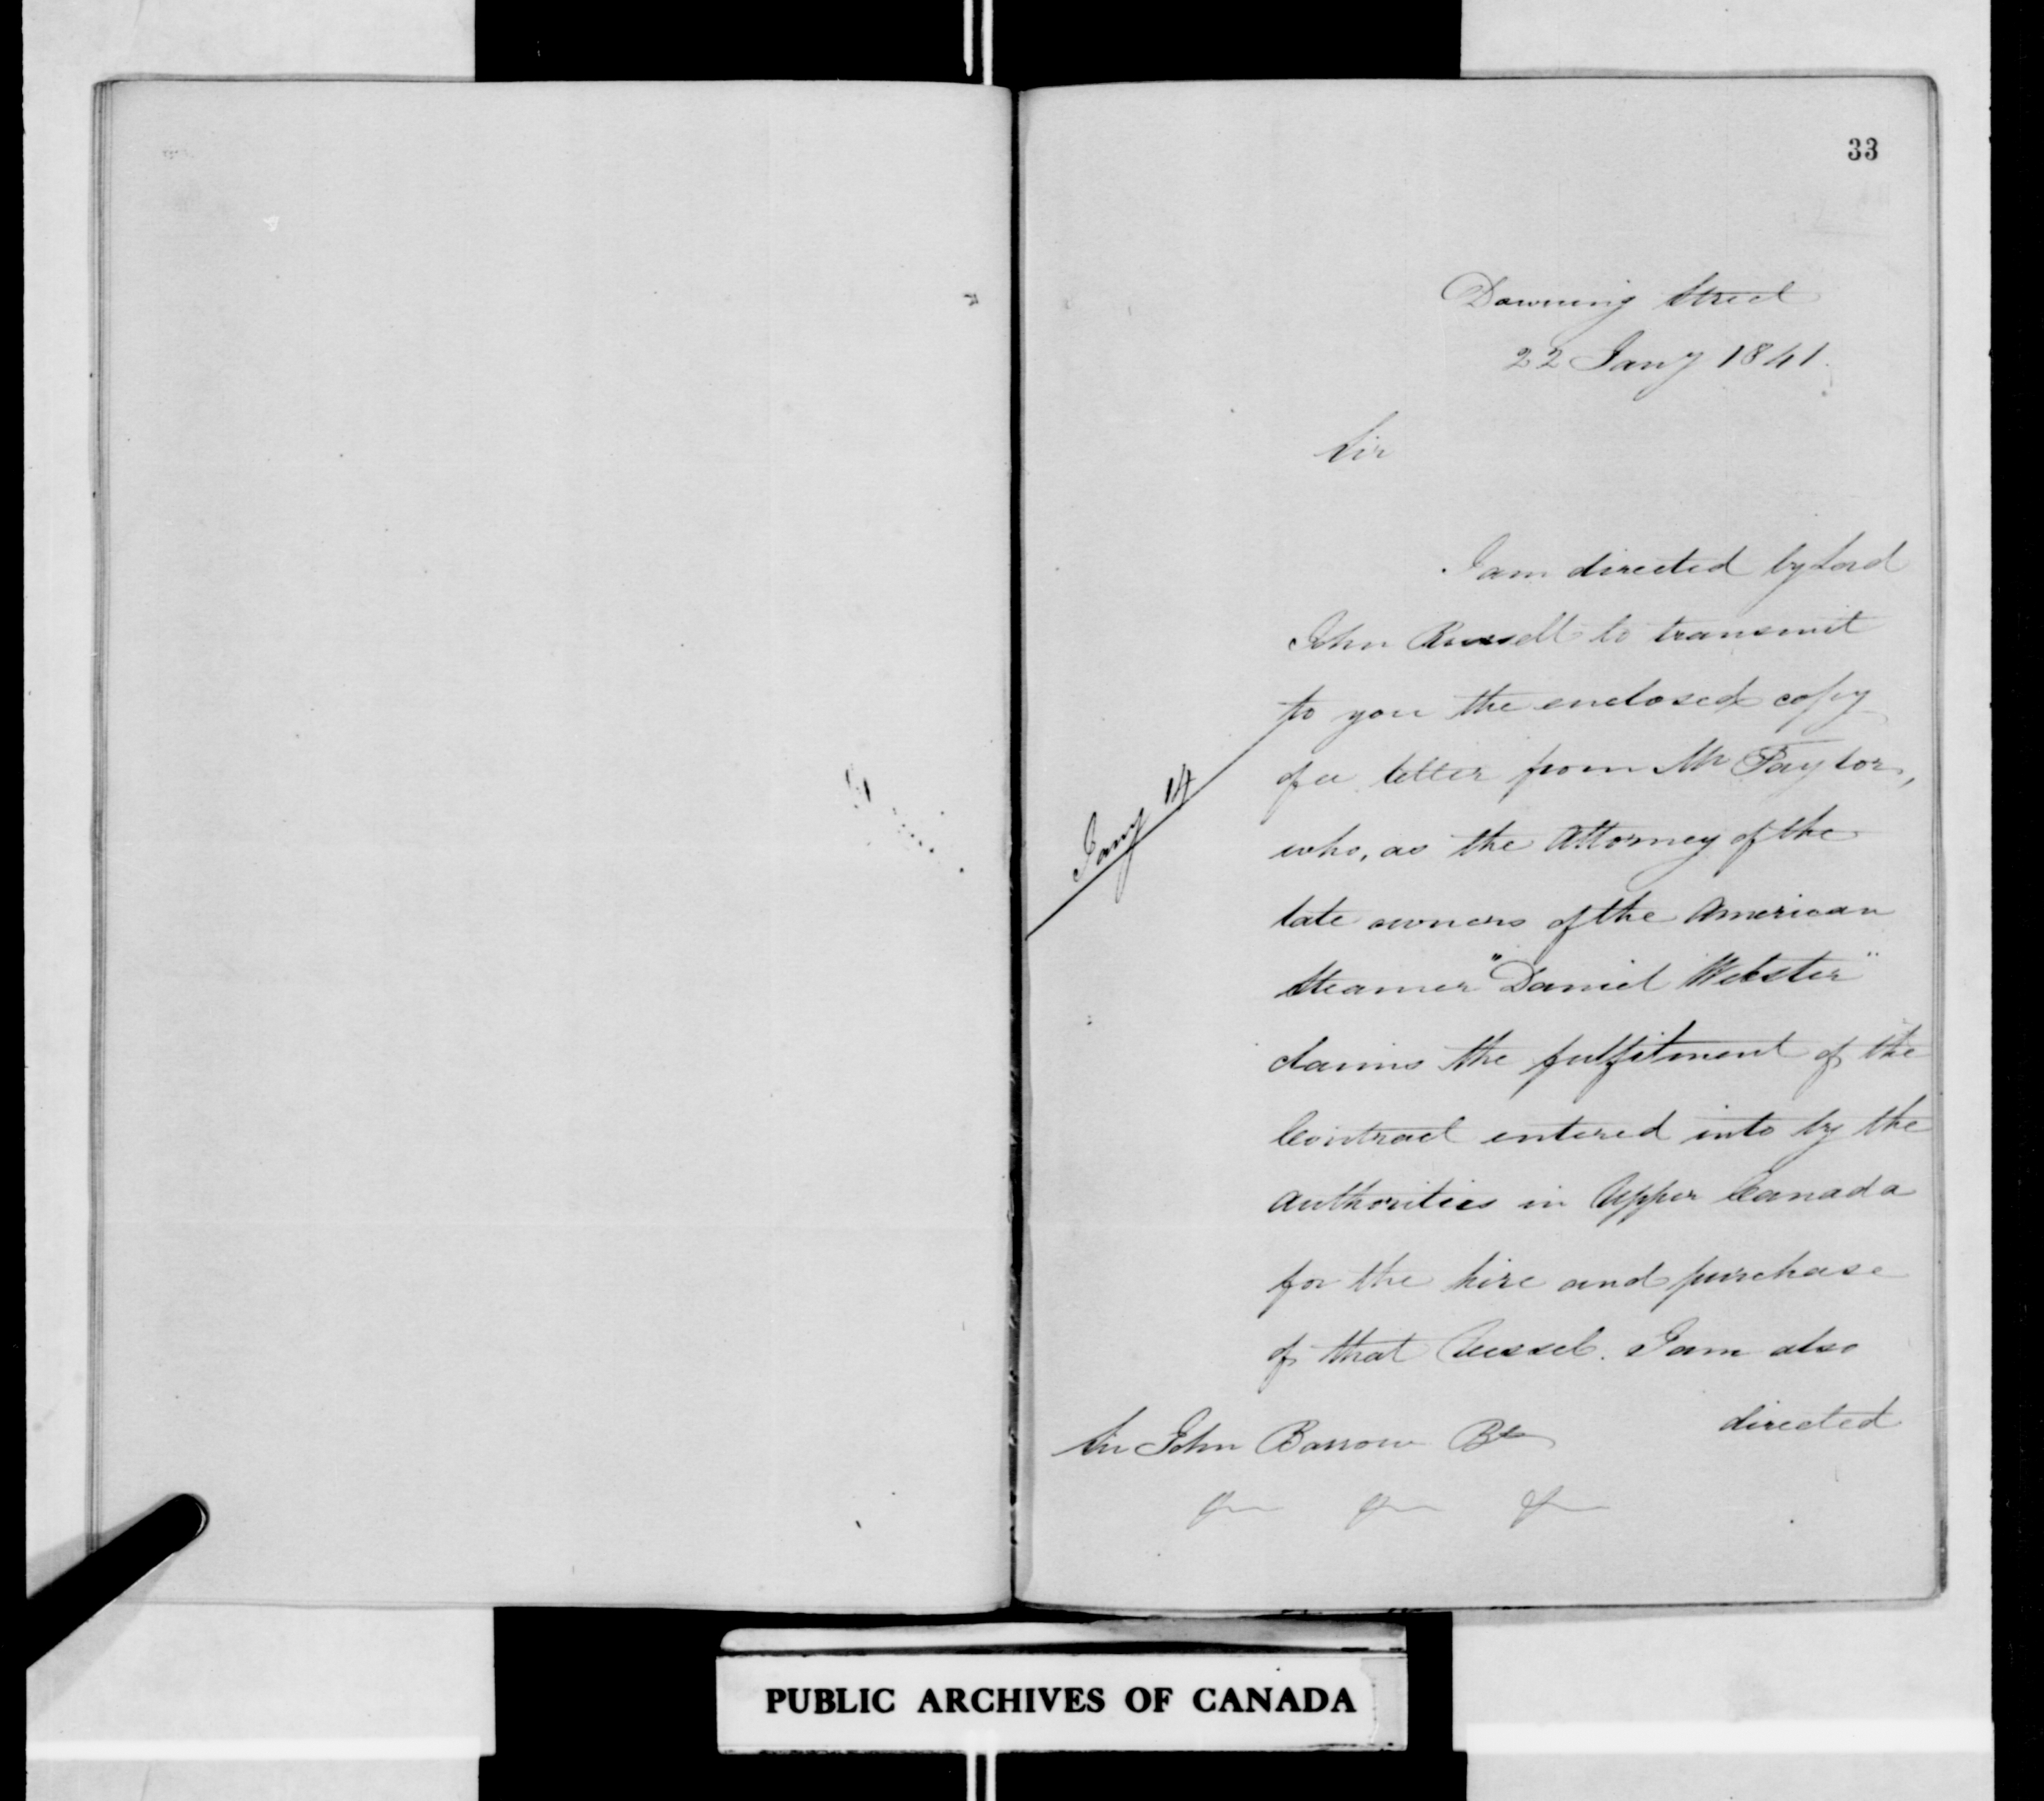 33
Downing Street
22 Jany 1841.
Sir
I am directed by Lord
John Russell to transmit
to you the enclosed copy
Jany 14
of a letter from Mr Taylor,
who, as the Attorney of the
late owners of the American
Steamer "Daniel Webster"
claims the fulfilment of the
Contract entered into by the
authorities in Upper Canada
for the hire and purchase
of that Vessel. I am also
directed
Sir John Barrow Bt
&c &c &c
PUBLIC ARCHIVES OF CANADA